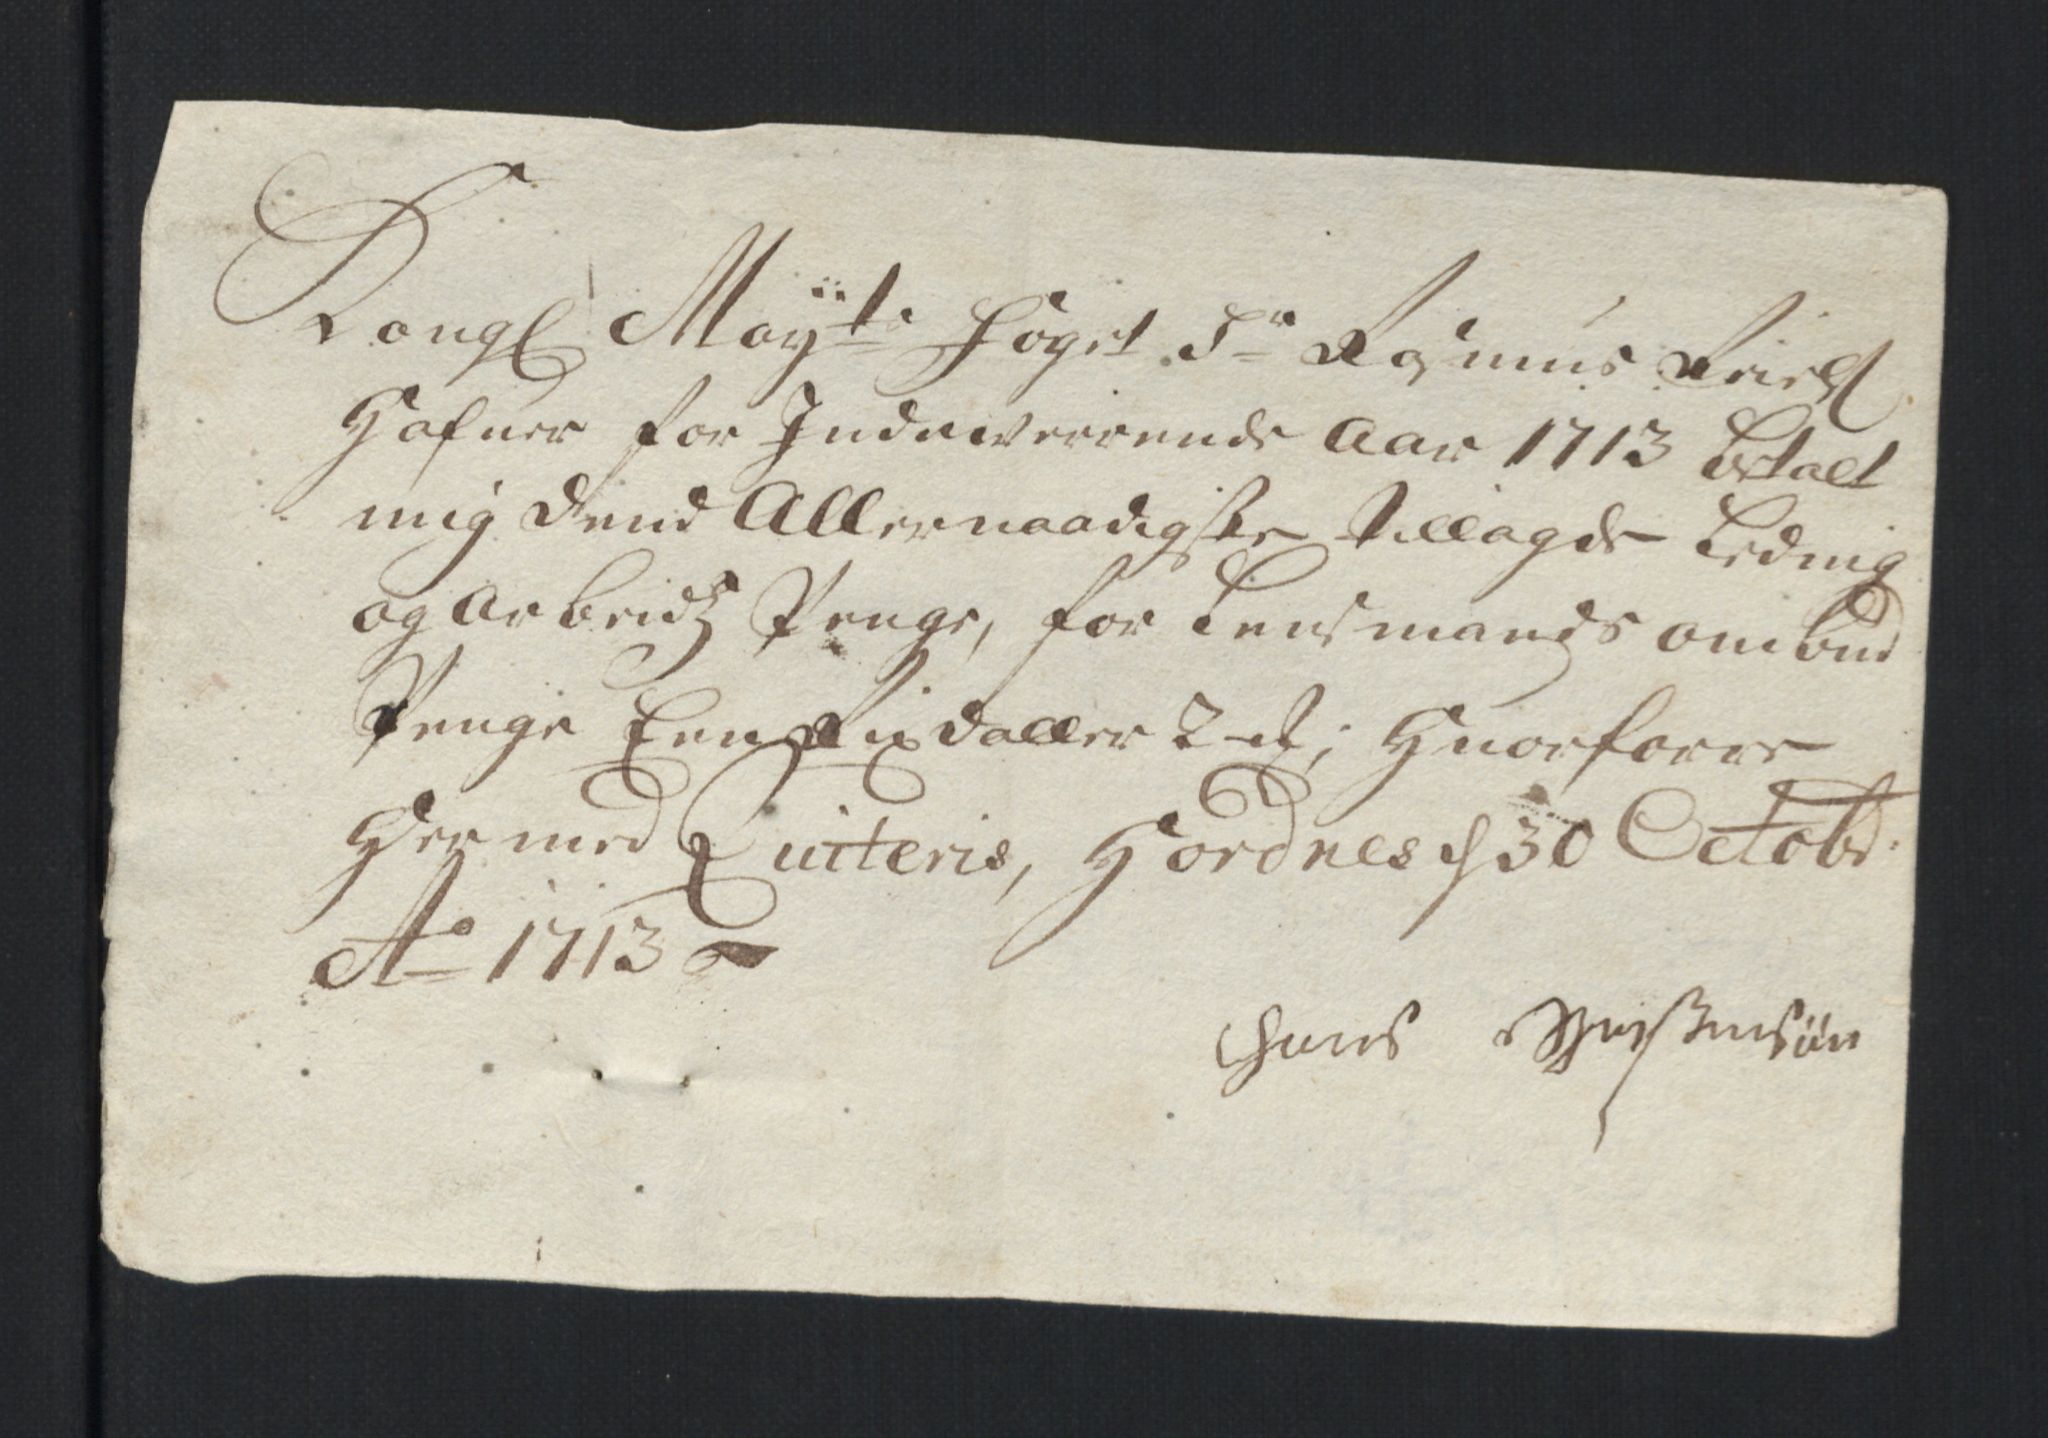 Kongl Mayts foget Sr Rasmus Kield
Hafuer for Indeverrende Aar 1713 betalt
mig dend Allernaadigste tillagde Leding
og Arbeidtz Penge, for Lensmands ombud
Penge Een Rixdaller 2 ; Huorforre
Hermed Quiteris, Hordnes d 30 Octobr:
Ao 1713
Hans